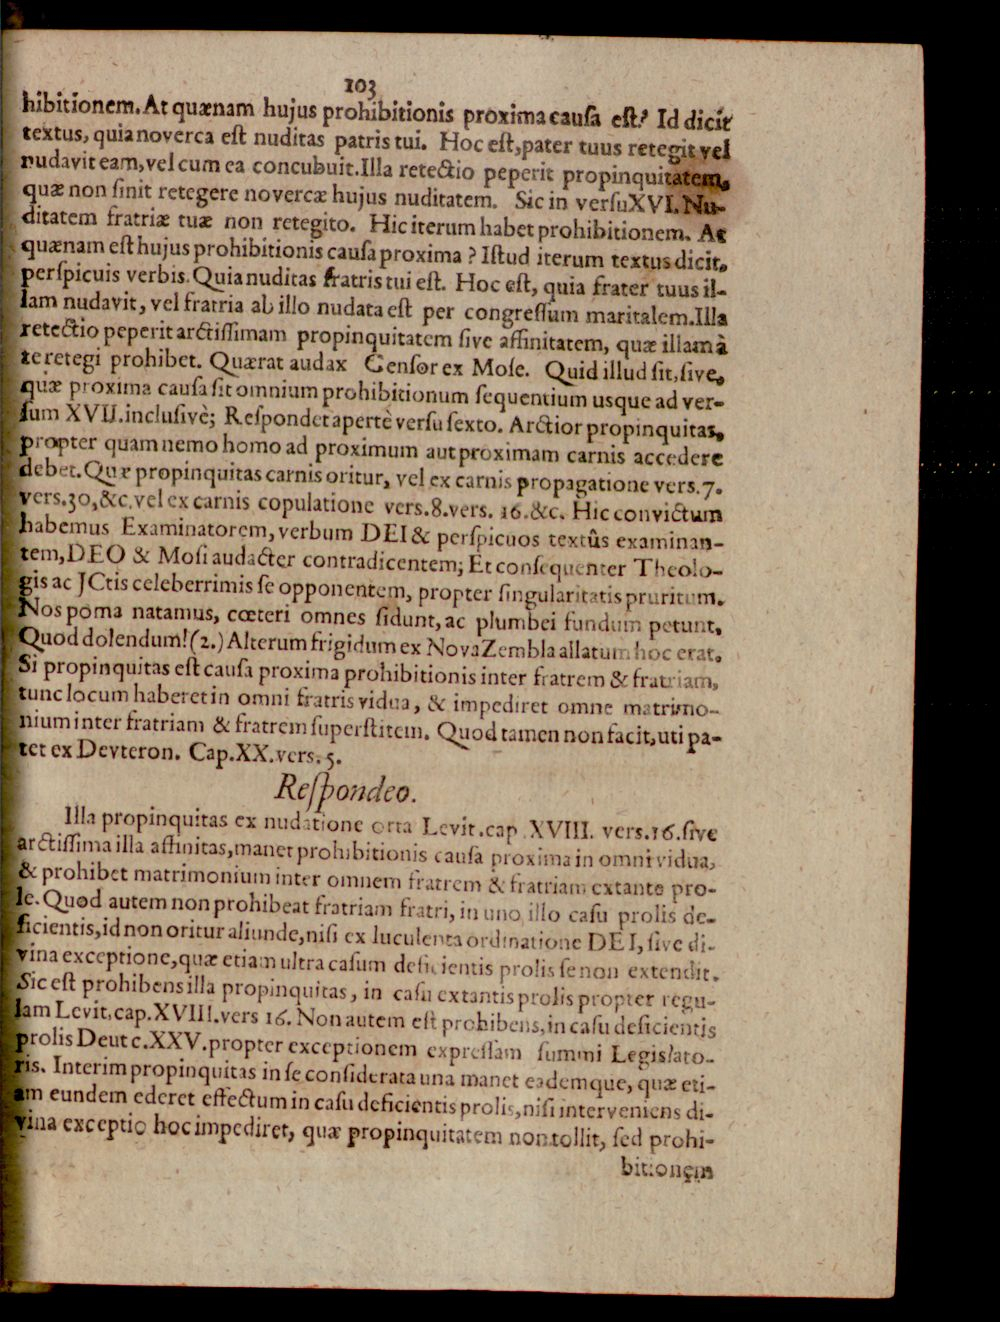 103
hibitionem. At quænam hujus prohibitionis proxima causa est? Id dicit
textus, quia noverca est nuditas patris tui. Hoc est, pater tuus retegit vel
nudavit eam, vel cum ea concubuit. Illa retectio peperit propinquitatem,
quæ non sinit retegere novercæ hujus nuditatem. Sic in versu XVI. Nu-
ditatem fratriæ tuæ non retegito. Hic iterum habet prohibitionem. At
quænam est hujus prohibitionis causa proxima? Istud iterum textus dicit,
perspicuis verbis. Quia nuditas fratris tui est. Hoc est, quia frater tuus il-
lam nudavit, vel fratria ab illo nudata est per congressum maritalem. Illa
retectio peperit arctissimam propinquitatem sive affinitatem, quæ illam à
te retegi prohibet. Quærat audax Censor ex Mose. Quid illud sit, sive,
quæ proxima causa sit omnium prohibitionum sequentium usque ad ver-
sum XVII. inclusivè; Respondet apertè versu sexto. Arctior propinquitas,
propter quam nemo homo ad proximum aut proximam carnis accedere
debet. Quæ propinquitas carnis oritur, vel ex carnis propagatione vers. 7.
vers. 30, &c. vel ex carnis copulatione vers. 8. vers. 16. &c. Hic convictum
habemus Examinatorem, verbum DEI & perspicuos textûs examinan-
tem, DEO & Mosi audacter contradicentem; Et consequenter Theolo-
gis ac JCtis celeberrimis se opponentem, propter singularitatis pruritum.
Nos poma natamus, cœteri omnes sidunt, ac plumbei fundum petunt,
Quod dolendum! (2.) Alterum frigidum ex Nova Zembla allatum hoc erat.
Si propinquitas est causa proxima prohibitionis inter fratrem & fratriam,
tunc locum haberet in omni fratris vidua, & impediret omne matrimo-
nium inter fratriam & fratrem superstitem. Quod tamen non facit, uti pa-
tet ex Devteron. Cap. XX. vers. 5.
Respondeo.
Illa propinquitas ex nudatione orta Levit. cap. XVIII. vers. 16. sive
arctissima illa affinitas, manet prohibitionis causa proxima in omni vidua,
& prohibet matrimonium inter omnem fratrem & fratriam extante pro-
le. Quod autem non prohibeat fratriam fratri, in uno illo casu prolis de-
ficientis, id non oritur aliunde, nisi ex luculenta ordinatione DEI, sive di-
vina exceptione, quæ etiam ultra casum deficientis prolis se non extendit.
Sic est prohibens illa propinquitas, in casu extantis prolis propter regu-
lam Levit. cap. XVIII. vers 16. Non autem est prohibens, in casu deficientis
prolis Deut c. XXV. propter exceptionem expressam summi Legislato-
ris. Interim propinquitas in se considerata una manet eademque, quæ eti-
am eundem ederet effectum in casu deficientis prolis, nisi interveniens di-
vina exceptio hoc impediret, quæ propinquitatem non tollit, sed prohi-
bitionem